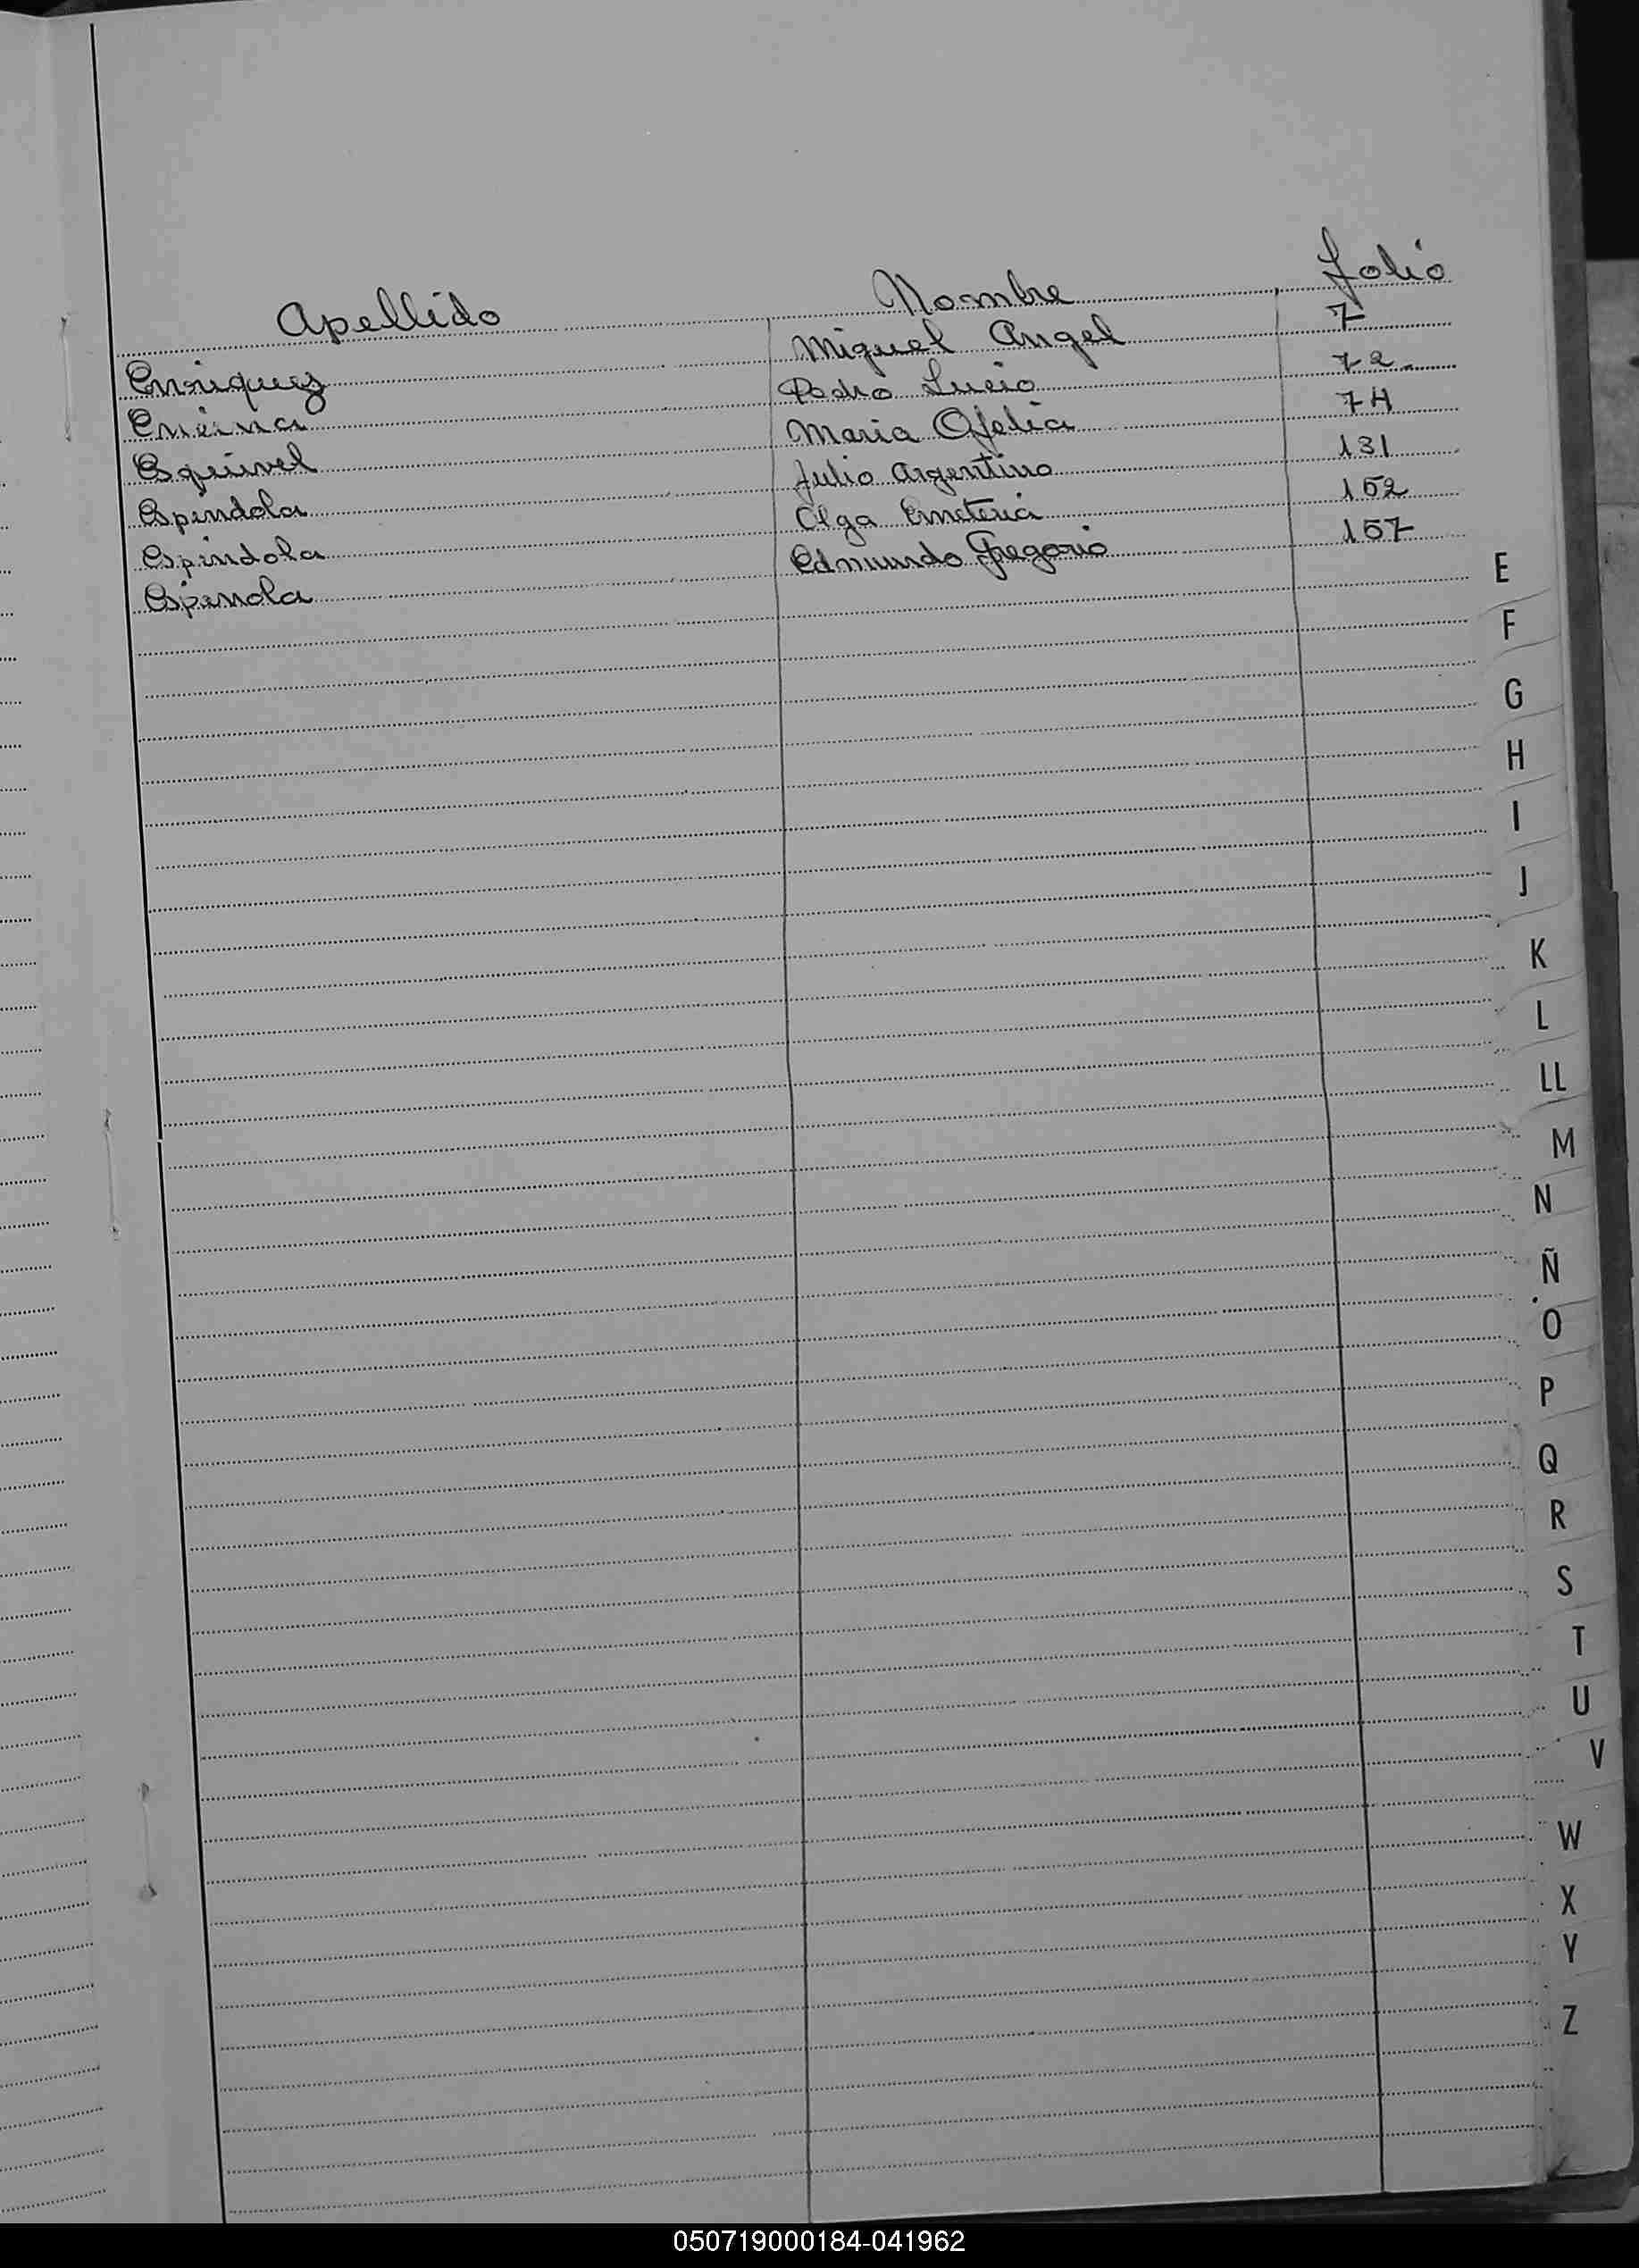 Apellido Nombre folio
Enriquez Miguel Angel 7
Encina Pedro Lucio 72
Esquivel Maria Ofelia 74
Espindola Julio Argentino 131
Espindola Olga Emeteria 152
Espinola Edmundo Gregorio 157
E
F
G
H
I
J
K
L
LL
M
N
Ñ
O
P
Q
R
S
T
U
V
W
X
Y
Z
050719000184-041962